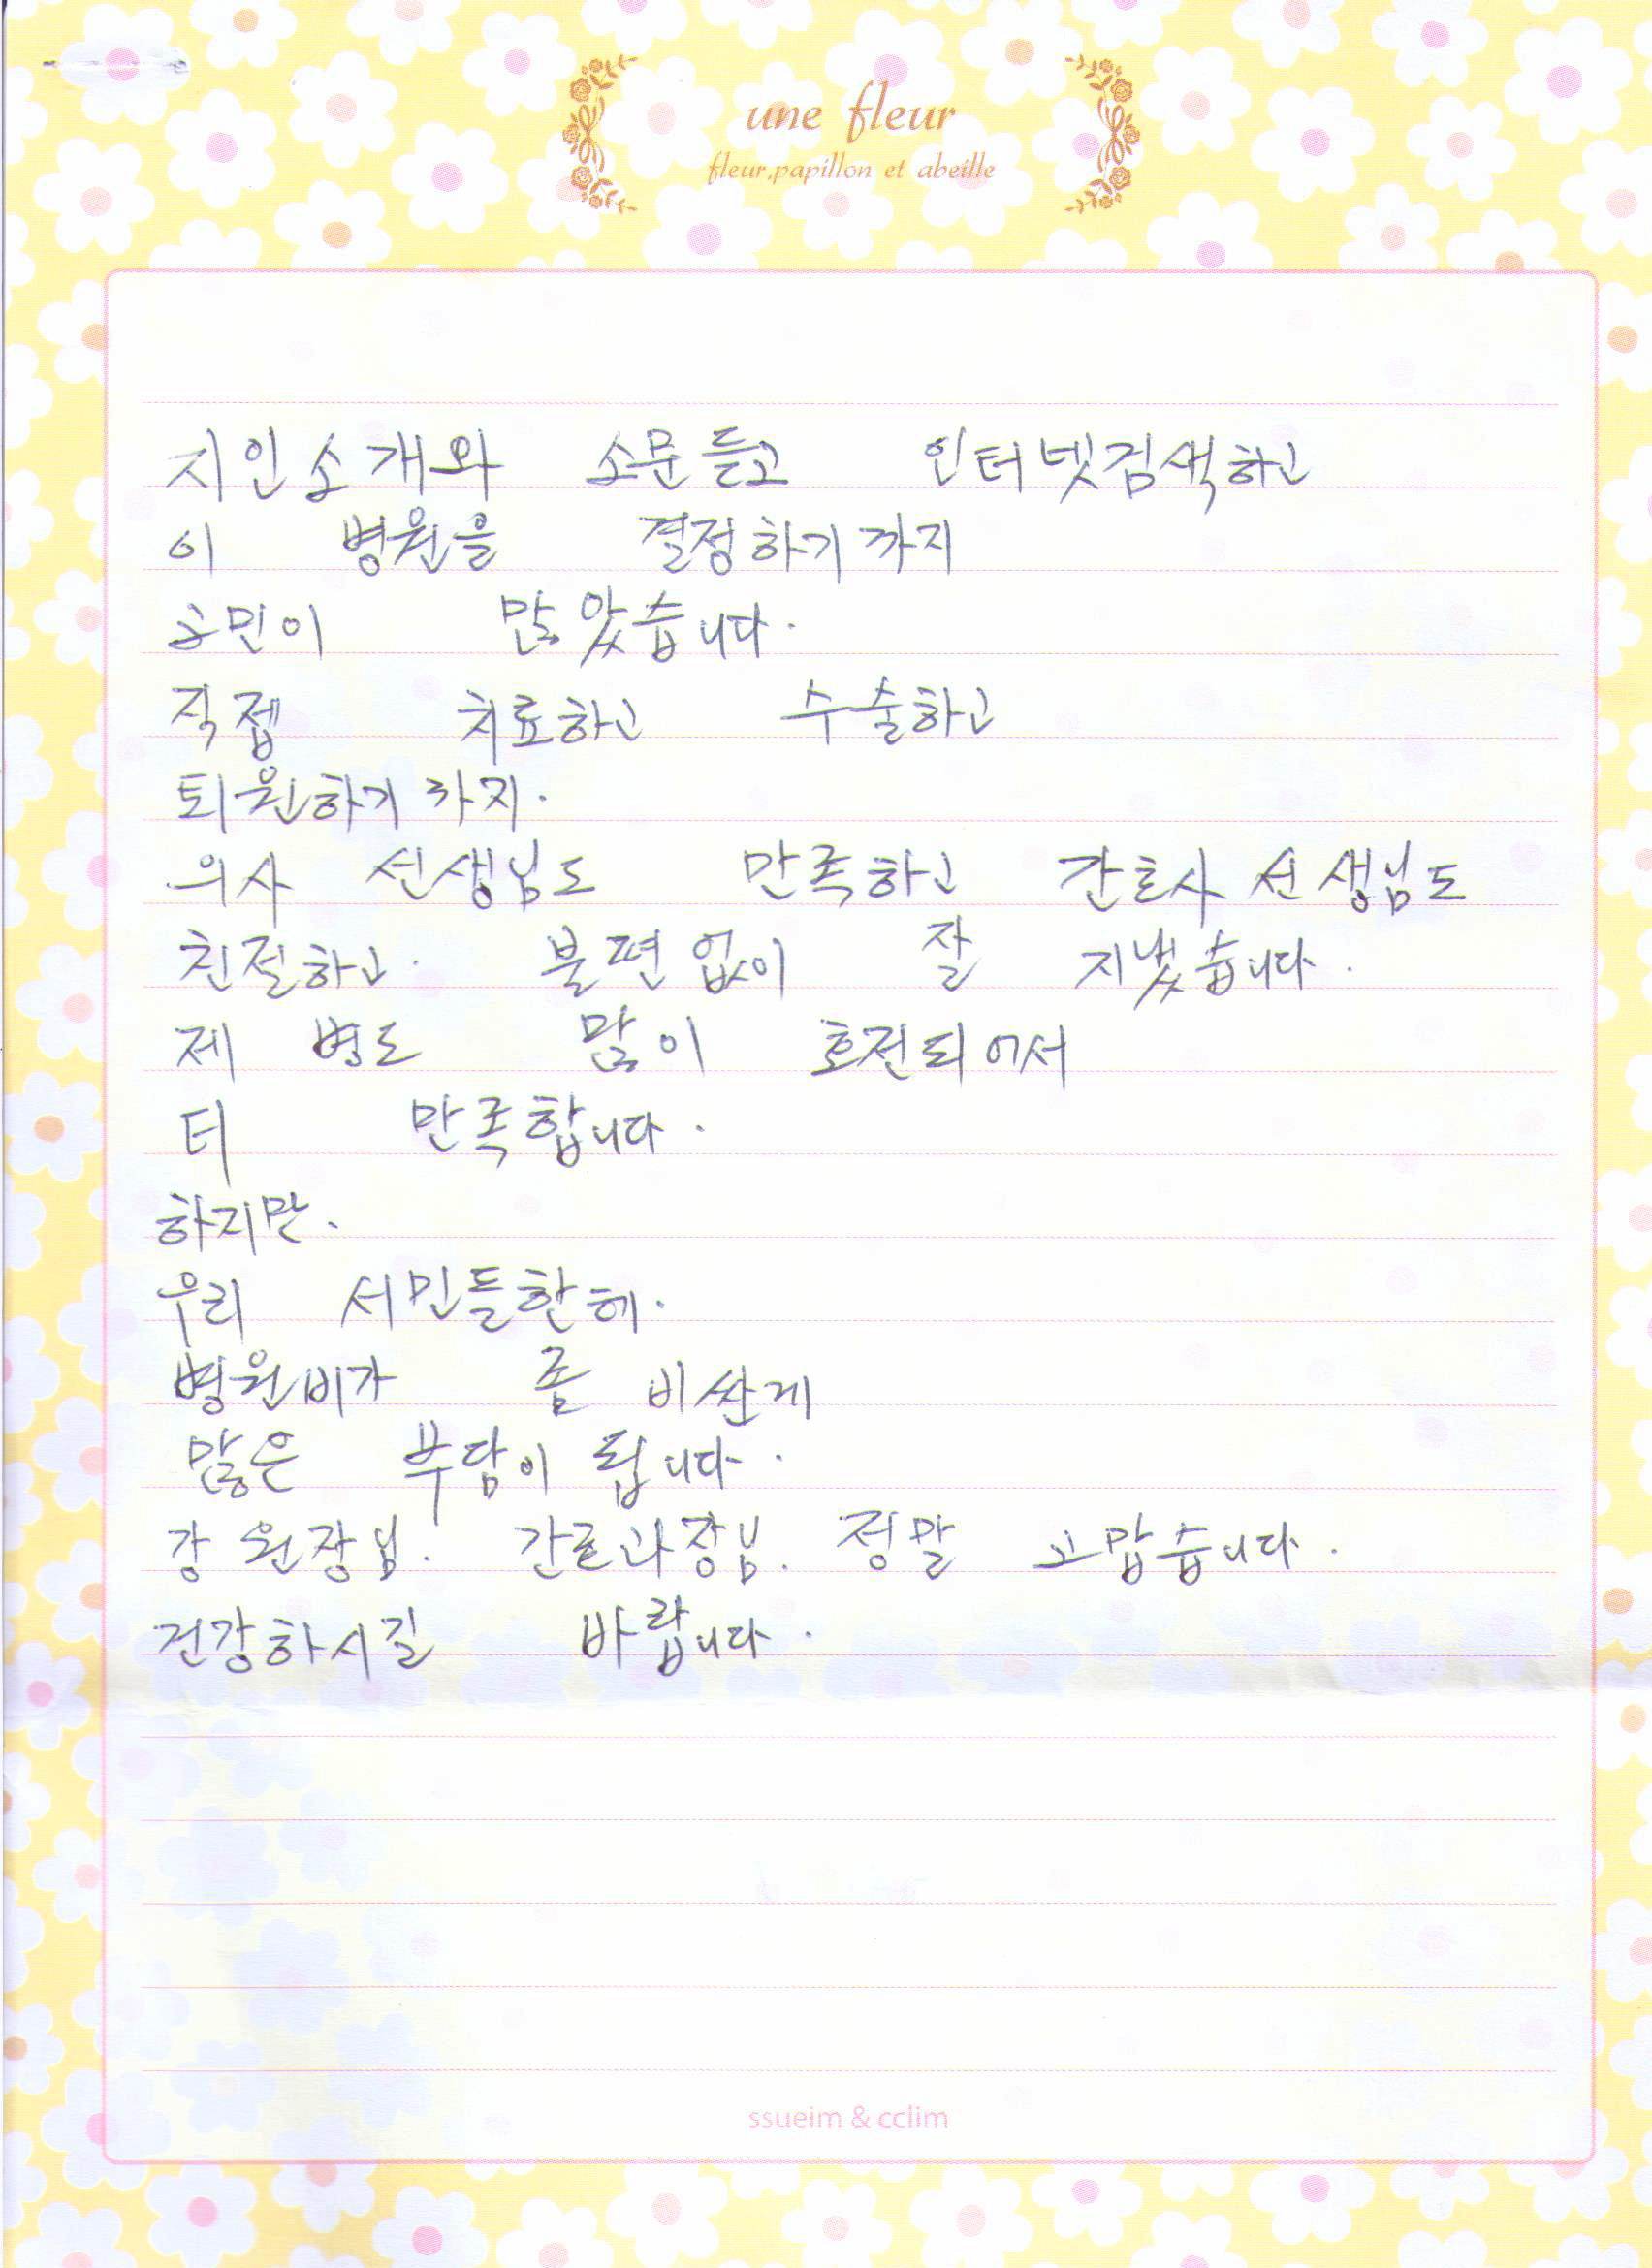 une fleur
fleur,papillon et abeille
지인소개와 소문듣고 인터넷검색하고
이 병원을 결정하기까지
고민이 많았습니다.
직접 치료하고 수술하고
퇴원하기까지.
의사 선생님도 만족하고 간호사 선생님도
친절하고. 불편없이 잘 지냈습니다.
제 병도 많이 호전되어서
더 만족합니다.
하지만.
우리 서민들한헤.
병원비가 좀 비싼게
많은 부담이 됩니다.
강 원장님. 간호과장님. 정말 고맙습니다.
건강하시길 바랍니다.
ssueim & cclim